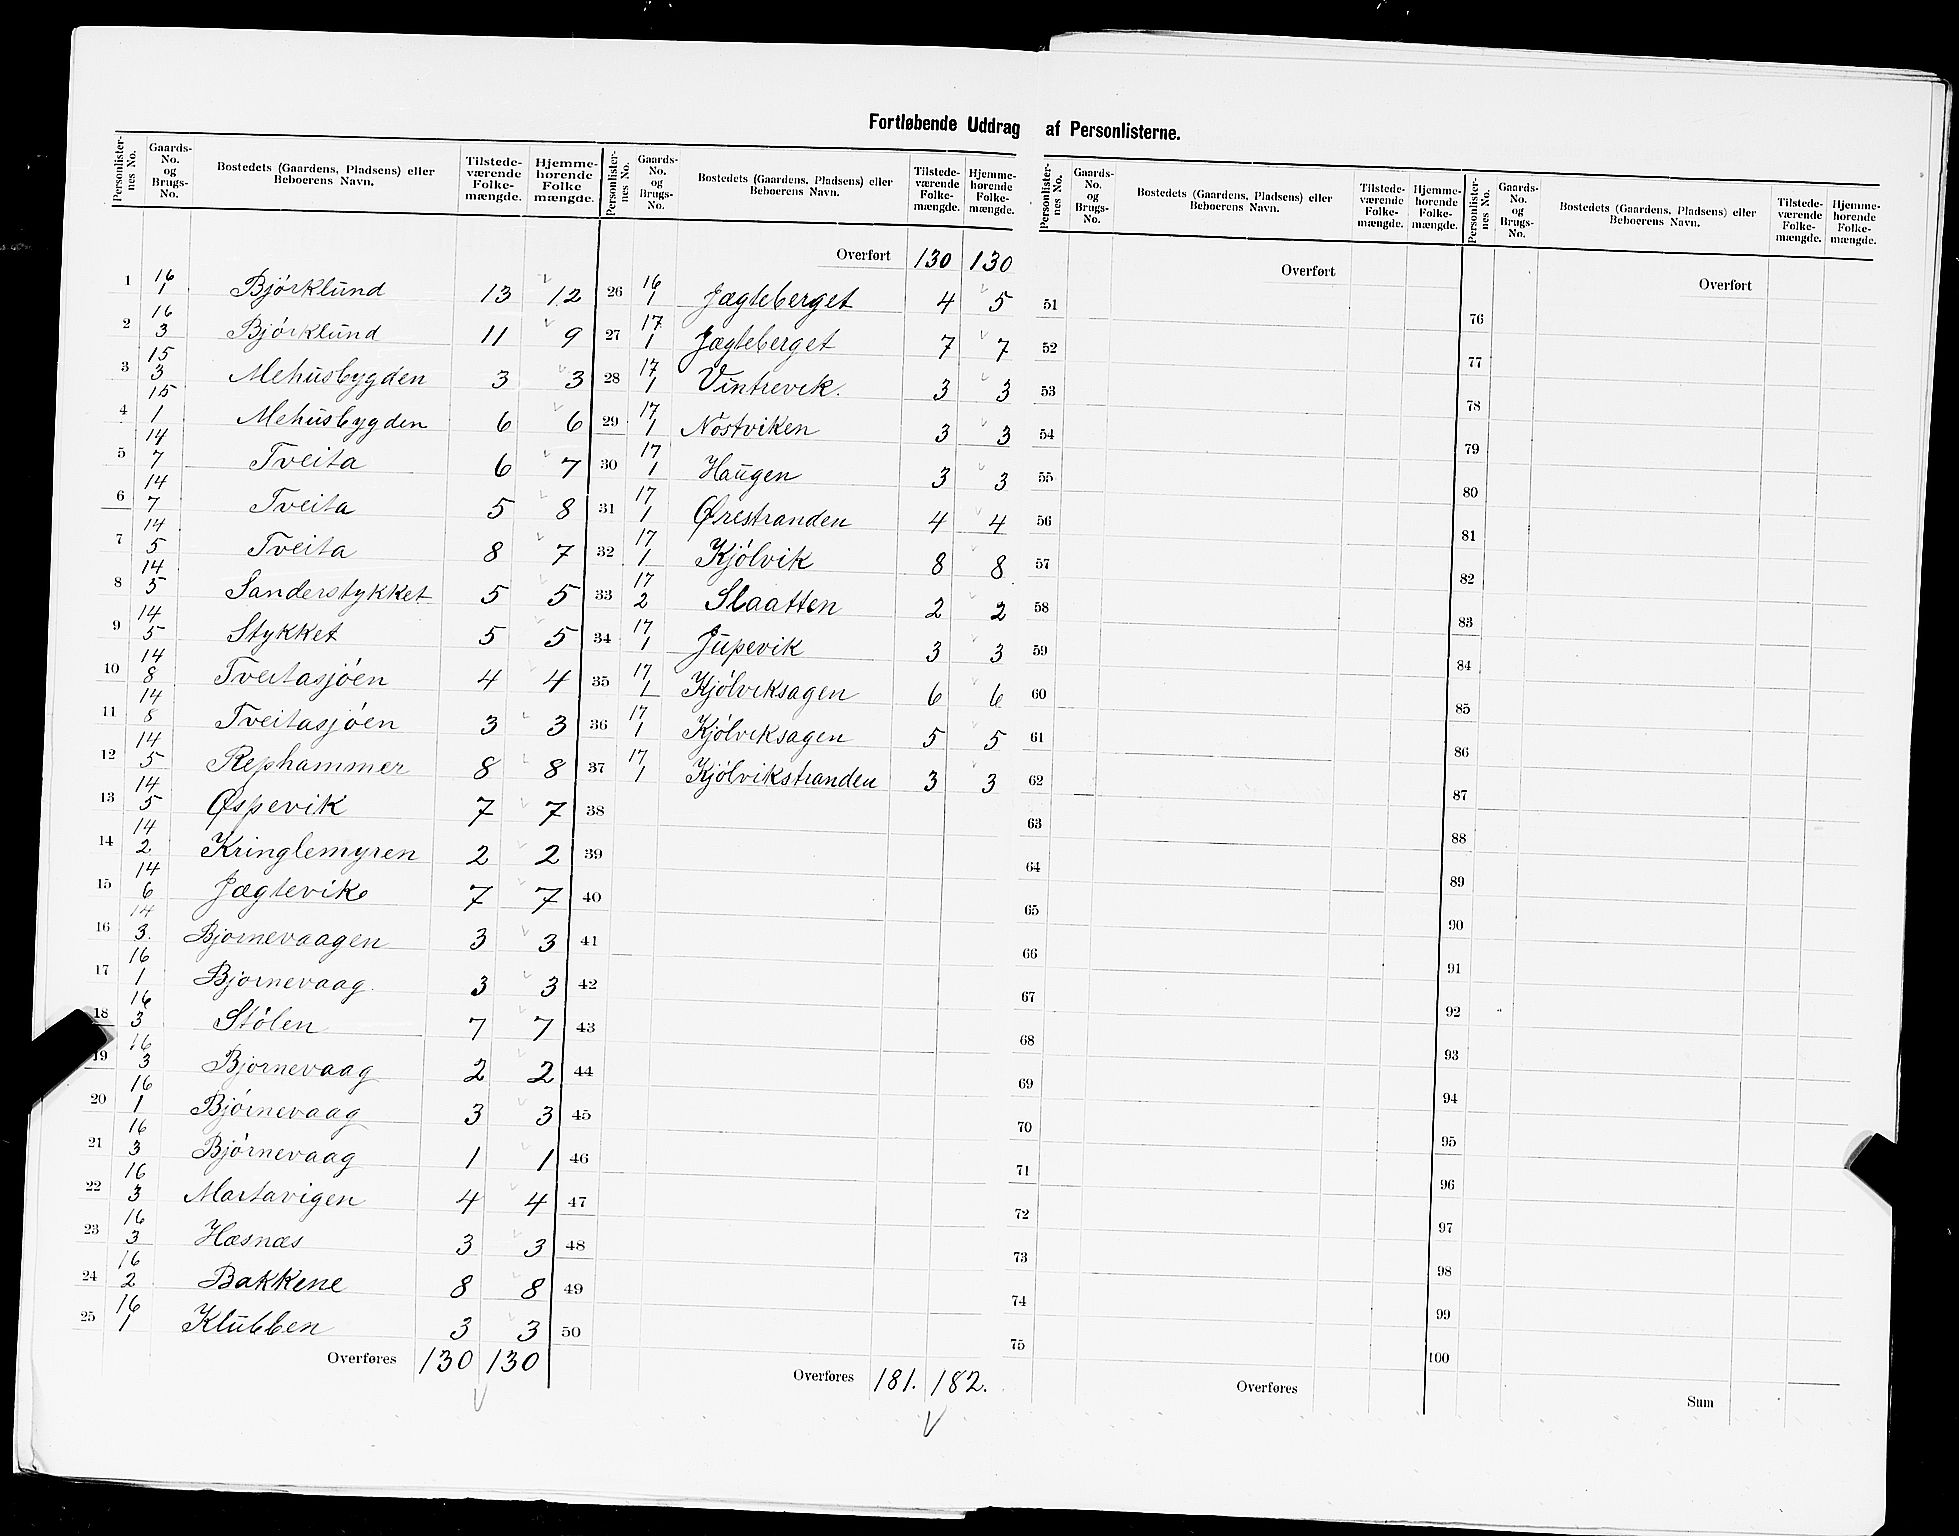 Fortløbende Uddrag af Personlisterne.
Personlister-nes No. | Gaards-No. og Brugs-No. | Bostedets (Gaardens, Pladsens) eller Beboerens Navn. | Tilstede-værende Folke-mængde. | Hjemme-hørende Folke mængde.
1 | 16/1 | Bjórklund | 13 | 12
2 | 16/3 | Bjórklund | 11 | 9
3 | 15/3 | Mehusbygden | 3 | 3
4 | 15/1 | Mehusbygden | 6 | 6
5 | 14/7 | Tveita | 6 | 7
6 | 14/7 | Tveita | 5 | 8
7 | 14/5 | Tveita | 8 | 7
8 | 14/5 | Sanderstykket | 5 | 5
9 | 14/5 | Stykket | 5 | 5
10 | 14/8 | Tveitasjóen | 4 | 4
11 | 14/8 | Tveitasjóen | 3 | 3
12 | 14/5 | Rephammer | 8 | 8
13 | 14/5 | Øspevik | 7 | 7
14 | 14/2 | Kringlemyren | 2 | 2
15 | 14/6 | Jægtevik | 7 | 7
16 | 14/3. | Bjornevaagen | 3 | 3
17 | 16/1 | Bjornevaag. | 3 | 3
18 | 16/3 | Stólen | 7 | 7
19 | 16/3 | Bjornevaag | 2 | 2
20 | 16/1 | Bjórnevaag | 3 | 3
21 | 16/3 | Bjórnevaag | 1 | 1
22 | 16/3 | Martavigen | 4 | 4
23 | 16/3 | Hæsnæs | 3 | 3
24 | 16/2 | Bakkene | 8 | 8
25 | 16/1 | Klubben | 3 | 3
Overføres 130 130
Personlister-nes No. | Gaards-No. og Brugs-No. | Bostedets (Gaardens, Pladsens) eller Beboerens Navn. | Tilstede-værende Folke-mængde. | Hjemme-hørende Folke-mængde.
Overført 130 130
26 | 16/1 | Jægteberget | 4 | 5
27 | 17/1 | Jægteberget | 7 | 7
28 | 17/1 | Vintrevik. | 3 | 3
29 | 17/1 | Nostviken | 3 | 3
30 | 17/1 | Haugen | 3 | 3
31 | 17/1 | Ørestranden | 4 | 4
32 | 17/1 | Kjólvik | 8 | 8
33 | 17/2 | Slaatten | 2 | 2
34 | 17/1 | Jupevik | 3 | 3
35 | 17/1 | Kjólviksagen | 6 | 6
36 | 17/1 | Kjólviksagen | 5 | 5
37 | 17/1 | Kjólvikstranden | 3 | 3
38
39
40
41
42
43
44
45
46
47
48
49
50
Overføres 181. 182.
Personlister-nes No. | Gaards-No. og Brugs-No. | Bostedets (Gaardens, Pladsens) eller Beboerens Navn. | Tilstede-værende Folke-mængde. | Hjemme-hørende Folke-mængde.
Overført
51
52
53
54
55
56
57
58
59
60
61
62
63
64
65
66
67
68
69
70
71
72
73
74
75
Overføres
Personlister-nes No. | Gaards-No. og Brugs-No. | Bostedets (Gaardens, Pladsens) eller Beboerens Navn. | Tilstede-værende Folke-mængde. | Hjemme-hørende Folke-mængde.
Overført
76
77
78
79
80
81
82
83
84
85
86
87
88
89
90
91
92
93
94
95
96
97
98
99
100
Sum